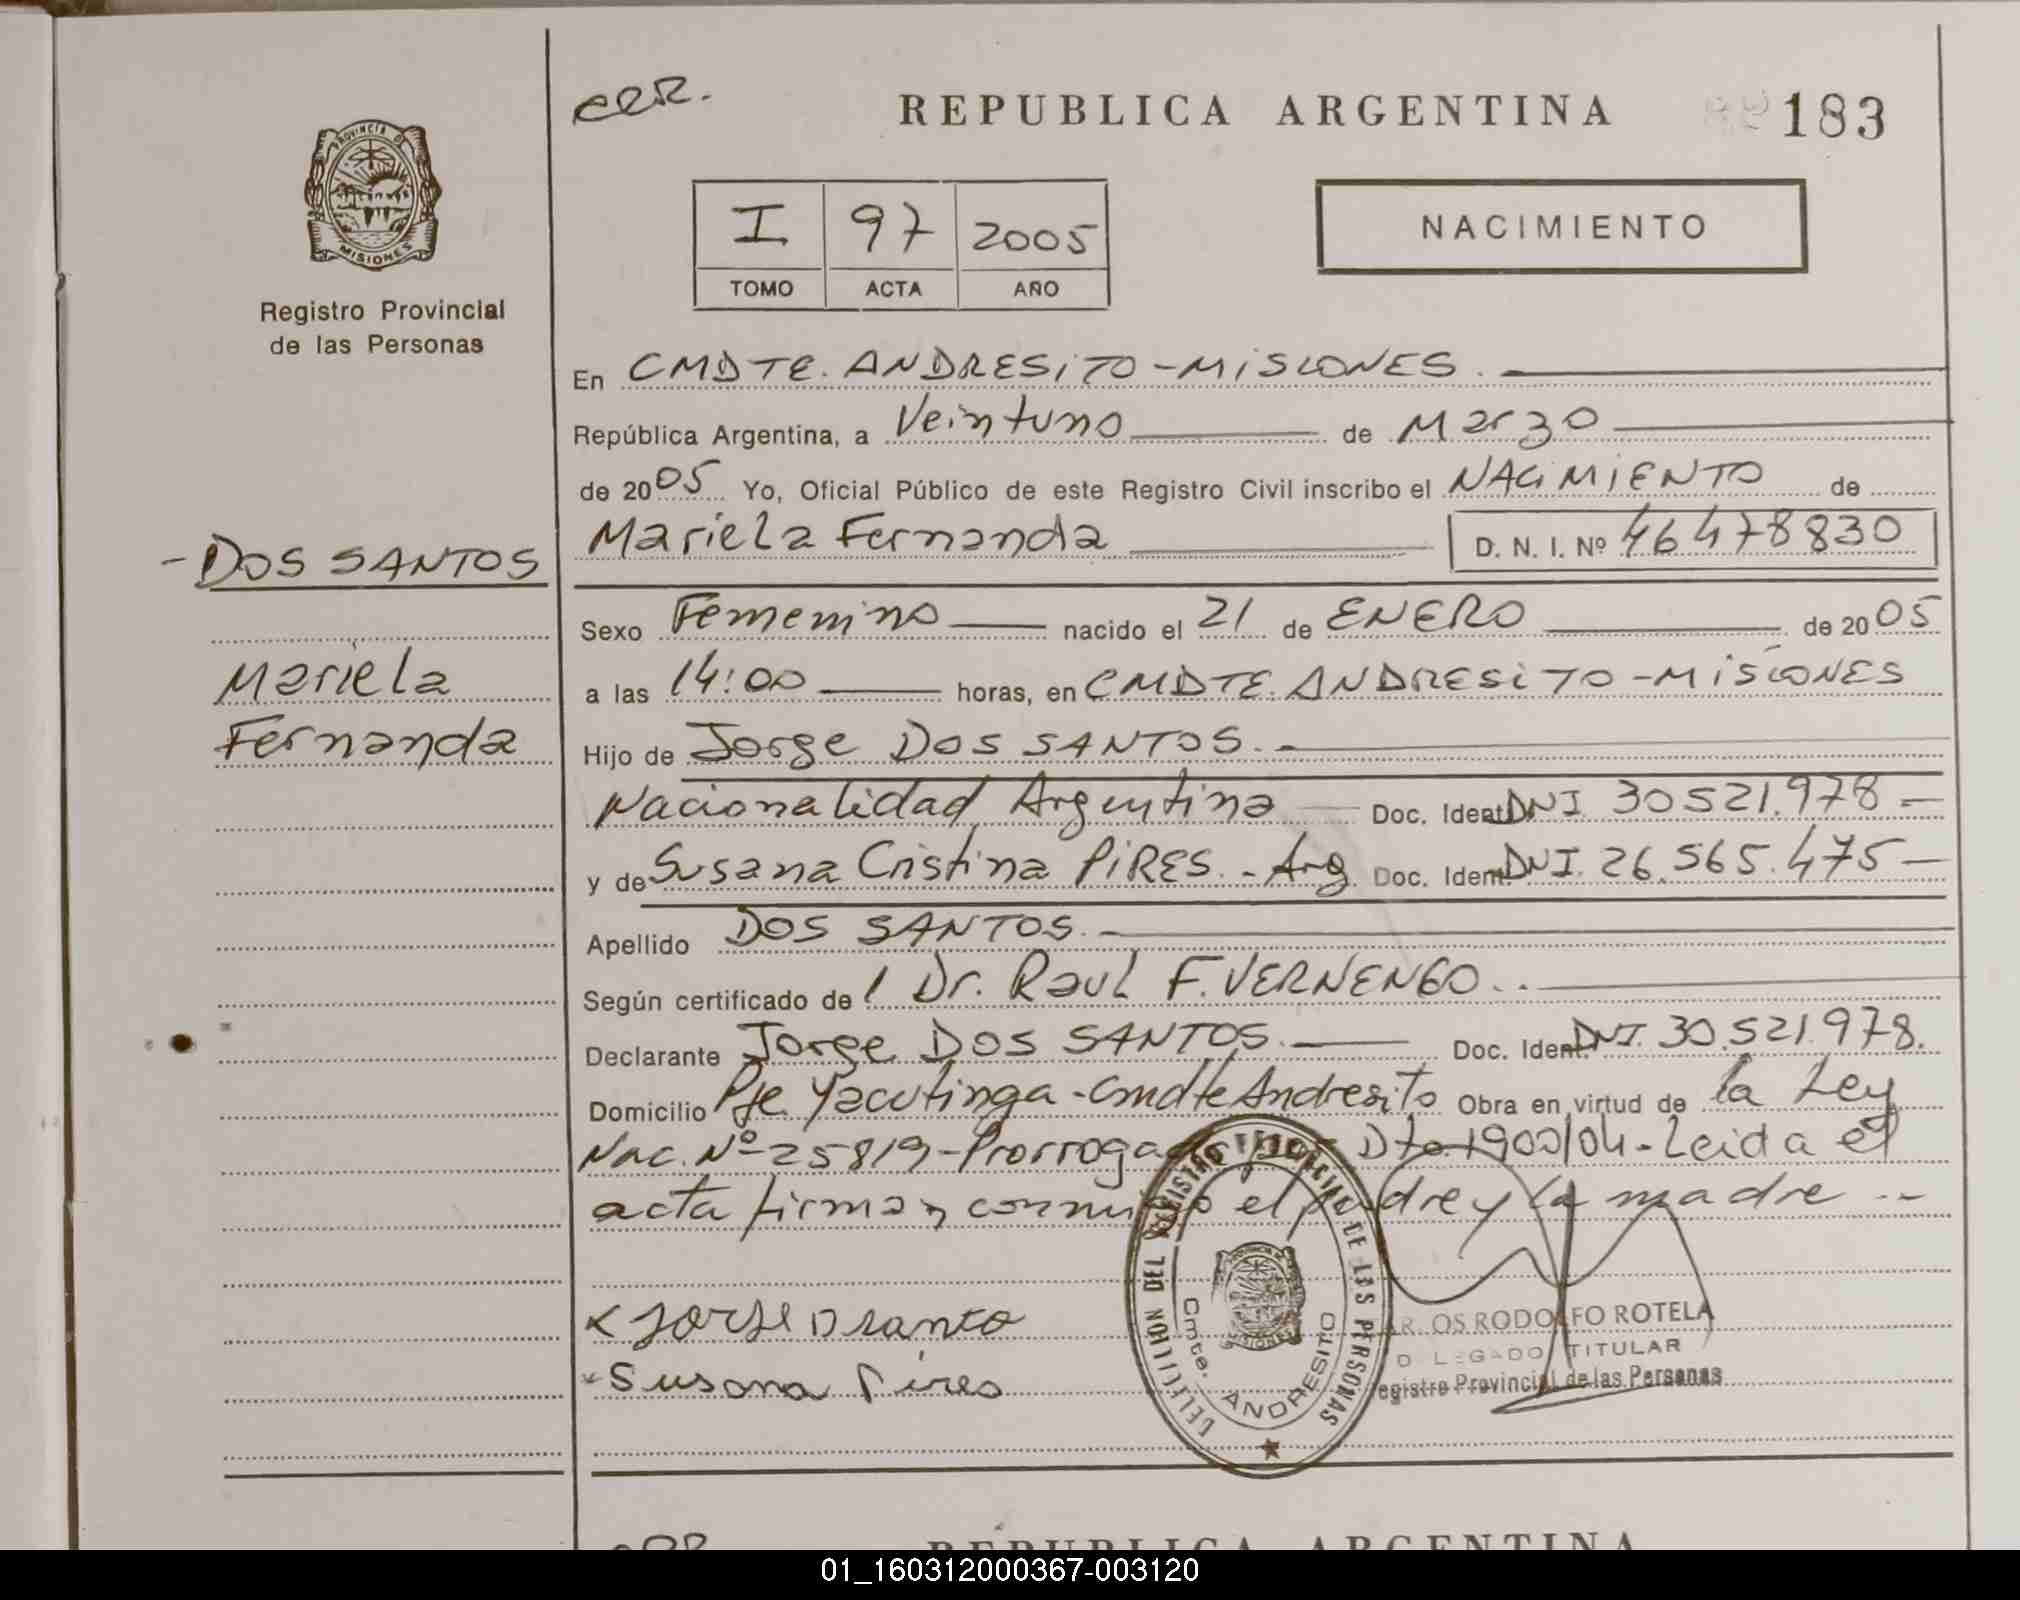 CER.
REPUBLICA ARGENTINA
183
PROVINCIA DE
MISIONES
Registro Provincial
de las Personas
I 97 2005
TOMO ACTA AÑO
NACIMIENTO
En CMDTE. ANDRESITO - MISIONES.
República Argentina, a Veintuno de Marzo
de 2005 Yo, Oficial Público de este Registro Civil inscribo el NACIMIENTO de
Mariela Fernanda D. N. I. Nº 46478830
- DOS SANTOS
Mariela
Fernanda
Sexo Femenino nacido el 21 de ENERO de 2005
a las 14:00 horas, en CMDTE. ANDRESITO - MISIONES
Hijo de Jorge DOS SANTOS. -
Nacionalidad Argentina Doc. Ident. DNI 30521.978 -
y de Susana Cristina PIRES. - Arg Doc. Ident. DNI. 26.565.475 -
Apellido DOS SANTOS. -
Según certificado de Dr. Raul F. VERNENGO..
Declarante Jorge DOS SANTOS. Doc. Ident. DNI. 30.521.978.
Domicilio Pje Yacutinga - Cmdte Andresito Obra en virtud de la Ley
Nac. Nº 25819 - Prorrogada por Dto 1900/04 - Leida el
acta firman conmigo el padre y la madre --
DEL REGISTRO DE LAS PERSONAS
Cmte. ANDRESITO
x Jorge D santo
Susana Pires
RODOLFO ROTELA
TITULAR
Registro Provincial de las Personas
REPUBLICA ARGENTINA
01_160312000367-003120